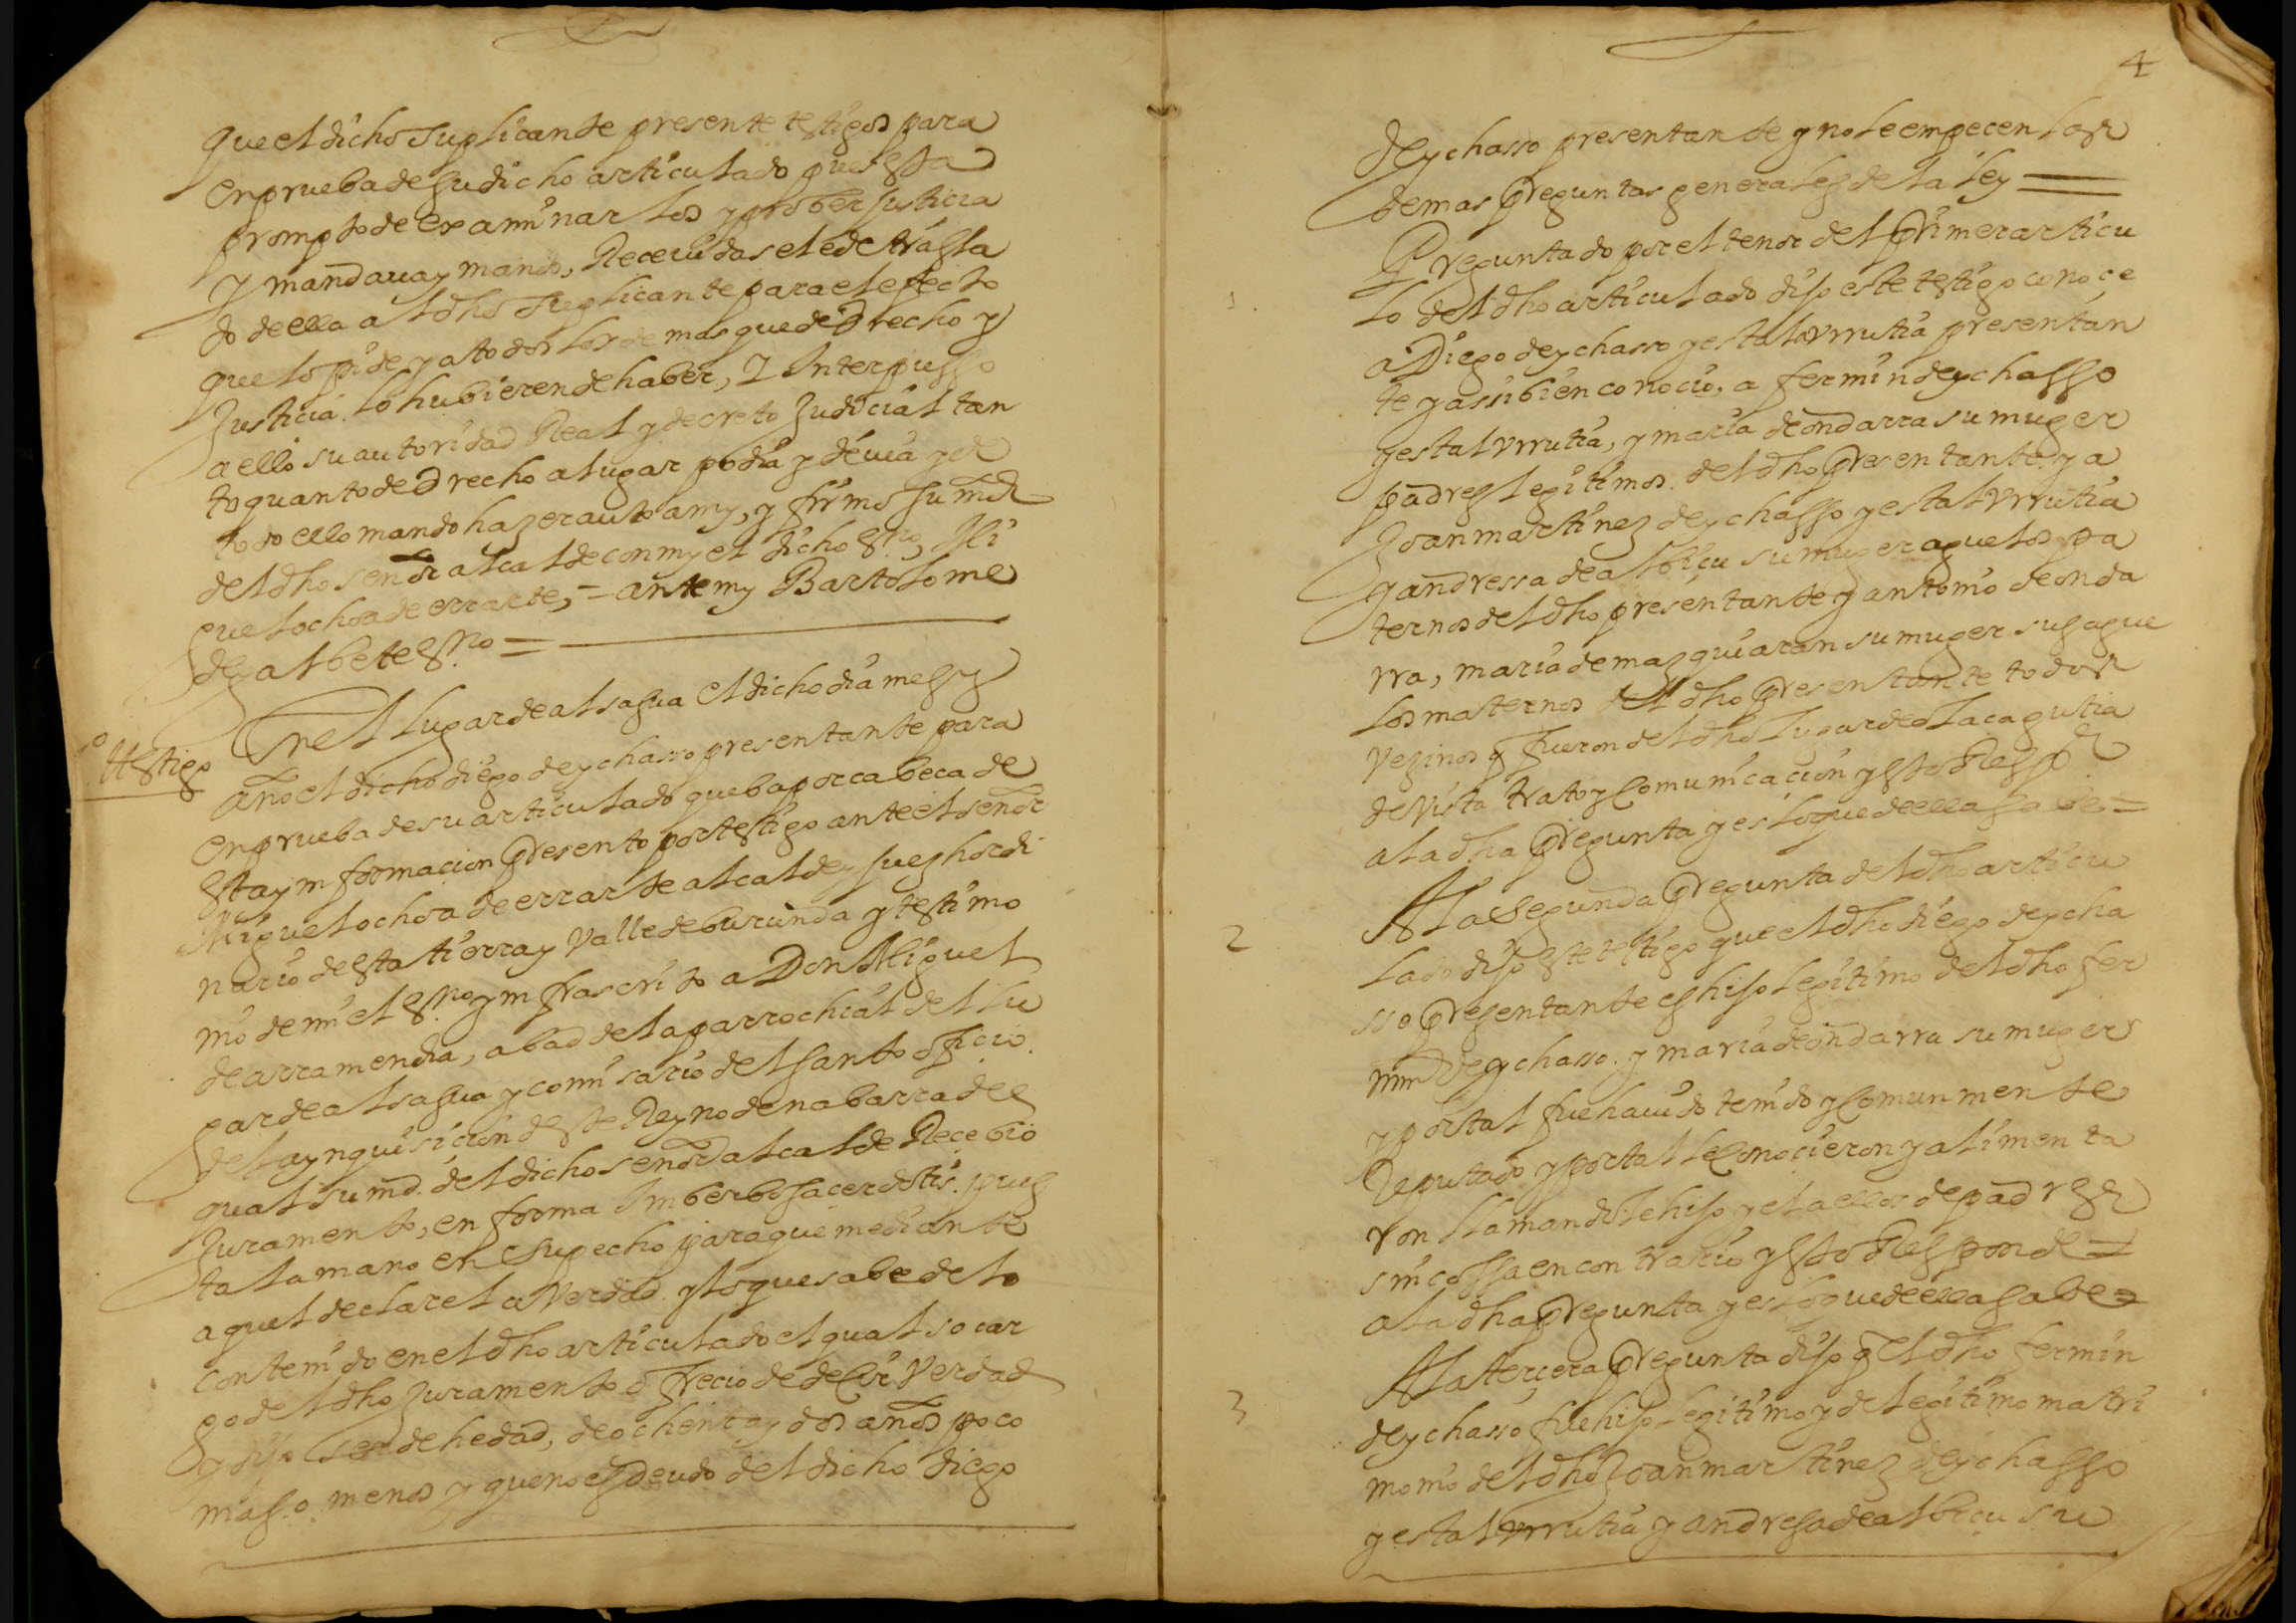 que el dicho suplicante presente testigos para
en prueba de su dicho articulado que esta
prompto de examinar los y prober justicia
Y mandaua y mando, Receuidas se le de trasla
do de ella al dho suplicante para el efecto
que lo pide y a todos los demas que de Drecho y
Justicia lo hubieren de haber, Y Interpusso
a ello su autoridad Real y decreto Judicial tan
to quanto de Drecho a lugar podia y deuia y de
todo ello mando hazer auto a my, y firmo su md
del dho señor alcalde con my el dicho essno, Mi
guel ochoa de errarte, = ante my Bartolome
de galbete essno =
1º testigo
En el Lugar de alsasua el dicho dia mes y
año el dicho diego de ychasso presentante para
en prueba de su articulado que ba por cabeca de
esta ynformacion Presento por testigo ante el señor
Miguel ochoa de errarte alcalde y juez hordi
nario de esta tierra y valle de burunda y testimo
nio de mi el essno ynfrascrito a Don Miguel
de arramendia, abad de la parrochial del lu
gar de alsasua y comisario del santo officio
de la ynquisicion de este Reyno de nabarra del
qual su md. del dicho señor alcalde Recebio
Juramento, en forma Imberbo sacerdotis, pues
ta la mano en su pecho para que mediante
aquel declare la Verdad y lo que sabe de lo
contenido en el dho articulado el qual so car
go del dho Juramento offrecio de decir Verdad
y dijo ser de hedad, de ochenta y dos años poco
mas o menos y que no es deudo del dicho diego
4
de ychasso presentante y no le empecen las
demas Preguntas generales de la ley =
1
Preguntado por el tenor del Primer articu
lo del dho articulado dijo este testigo conoce
a Diego de ychasso yestal urrutia presentan
te y assi bien conocio, a fermin de ychasso
yestal urrutia, y maria de ondarra su muger
padres legitimos del dho Presentante y a
Joan martinez de ychasso yestal urrutia
y andressa de albicu su muger aguelos pa
ternos del dho presentante y antonio de onda
rra, maria de mazquiaran su muger sus ague
los maternos del dho Presentante todos
vezinos q fueron del dho Lugar de olacagutia
de vista trato y Comunicacion y esto Respde
a la dha Pregunta y es lo que de ella sabe =
2
A la segunda Pregunta del dho articu
lado dijo este testigo que el dho diego de ycha
sso Presentante es hijo legitimo del dho fer
min de ychasso. y maria de ondarra su muger
y por tal fue hauido tenido y Comunmente
Reputado y por tal le Conocieron y alimenta
ron llamandole hijo y el a ellos de padres
sin cossa en contrario y esto Responde =
a la dha Pregunta y es lo que de ella sabe =
3
A la tercera Pregunta dijo q el dho fermin
de ychasso fue hijo legitimo y de legitimo matri
monio del dho Joan martinez de ychasso
yestal urrutia y andresa de albicu su